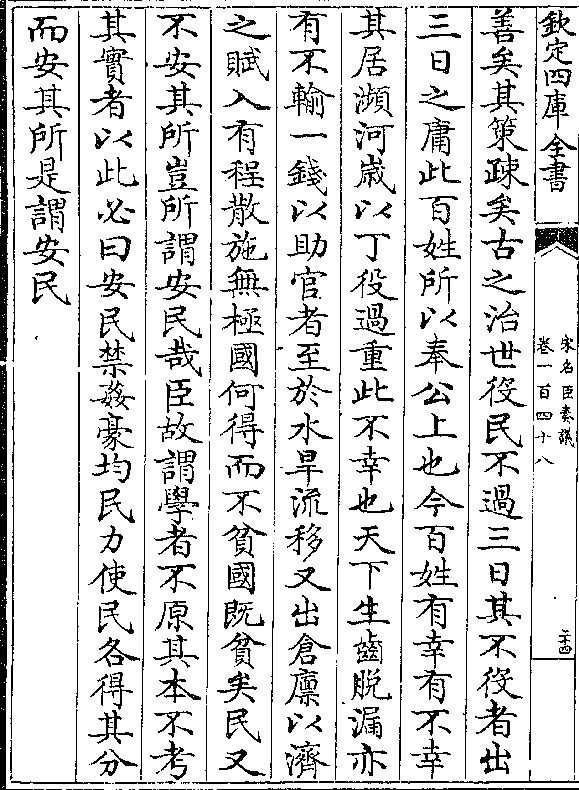 欽定四庫全書
宋名臣奏議
卷一百四十八
二十四
善矣其策疎矣古之治世役民不過三日其不役者出
三日之庸此百姓所以奉公上也今百姓有幸有不幸
其居瀕河嵗以丁役過重此不幸也天下生齒脱漏亦
有不輸一錢以助官者至於水旱流移又出倉廩以濟
之賦入有程散施無極國何得而不貧國既貧矣民又
不安其所豈所謂安民哉臣故謂學者不原其本不考
其實者以此必曰安民禁姦豪均民力使民各得其分
而安其所是謂安民